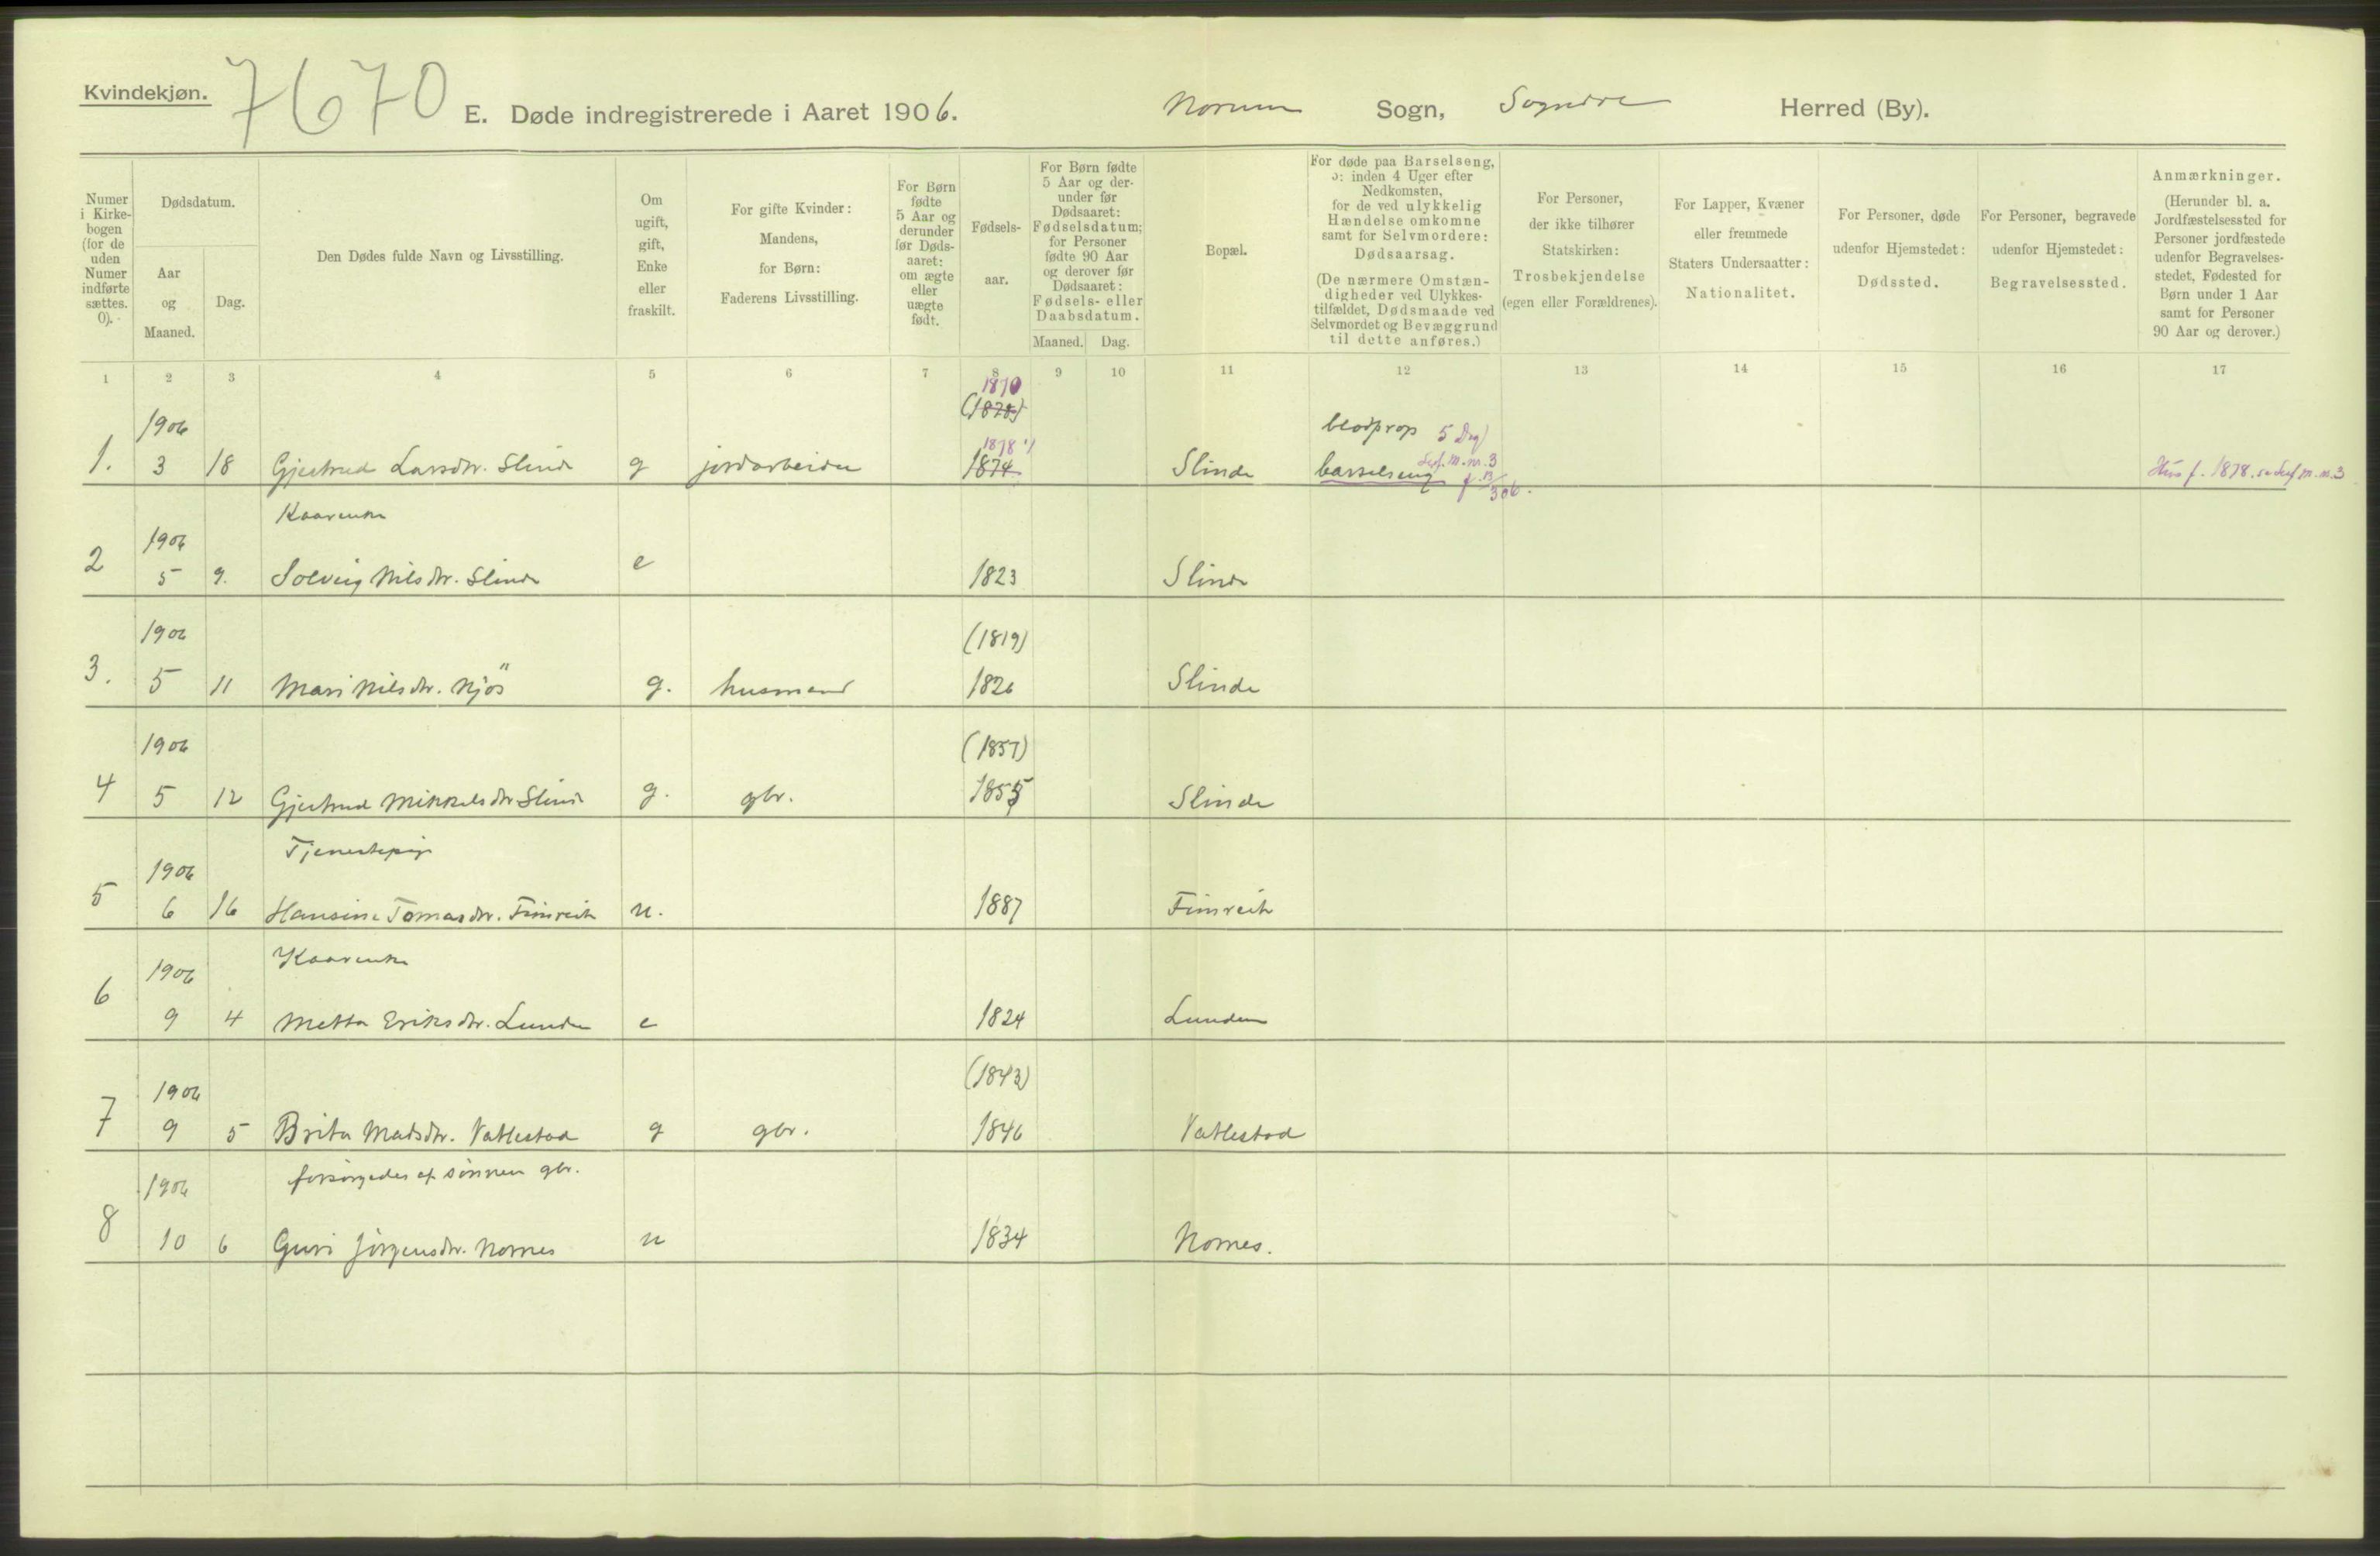 Kvindekjøn.
7670
E. Døde indregistrerede i Aaret 1906.
Norum Sogn, Sogndal Herred (By).
Numer i Kirkebogen (for de uden Numer indførte sættes. 0).
Dødsdatum.
Aar og Maaned.
Dag.
Den Dødes fulde Navn og Livsstilling.
Om ugift, gift, Enke eller fraskilt.
For gifte Kvinder: Mandens, for Børn: Faderens Livsstilling.
For Børn fødte 5 Aar og derunder før Dødsaaret: om ægte eller uægte født.
Fødselsaar.
For Børn fødte 5 Aar og derunder før Dødsaaret: Fødselsdatum; for Personer fødte 90 Aar og derover før Dødsaaret: Fødsels- eller Daabsdatum.
Maaned. Dag.
Bopæl.
For døde paa Barselseng, ɔ: inden 4 Uger efter Nedkomsten, for de ved ulykkelig Hændelse omkomne samt for Selvmordere: Dødsaarsag.
(De nærmere Omstændigheder ved Ulykkestilfældet, Dødsmaade ved Selvmordet og Bevæggrund til dette anføres.)
For Personer, der ikke tilhører Statskirken: Trosbekjendelse (egen eller Forældrenes).
For Lapper, Kvæner eller fremmede Staters Undersaatter: Nationalitet.
For Personer, døde udenfor Hjemstedet: Dødssted.
For Personer, begravede udenfor Hjemstedet: Begravelsessted.
Anmærkninger.
(Herunder bl. a. Jordfæstelsessted for Personer jordfæstede udenfor Begravelsesstedet, Fødested for Børn under 1 Aar samt for Personer 90 Aar og derover.)
1 2 3 4 5 6 7 8 9 10 11 12 13 14 15 16 17
1870
(1878)
1906 1878 blodprop 5 Dag
1. 3 18 Gjertrud Larsdtr. Slinde g jordarbeider 1874 Slinde barselseng
Kaarenke
1906
2 5 9. Solveig Nilsdtr. Slinde e 1823 Slinde
1906 (1819)
3. 5 11 Mari Nilsdtr. Njøs g. husmand 1826 Slinde
1906 (1857)
4 5 12 Gjertrud Mikkelsdtr Slinde g. gbr. 1855 Slinde
Tjenestepige
1906
5 6 16 Hansine Tomasdtr. Fimreite u. 1887 Fimreite
Kaarenke
1906
6 9 4 Metta Eriksdtr. Lunden e 1824 Lunden
1906 (1843)
7 9 5 Brita Madsdtr. Vatlestad g gbr. 1846 Vatlestad
forsørgedes af sønnen gbr.
1906
8 10 6 Guri Jørgensdtr. Nornes u 1834 Nornes.